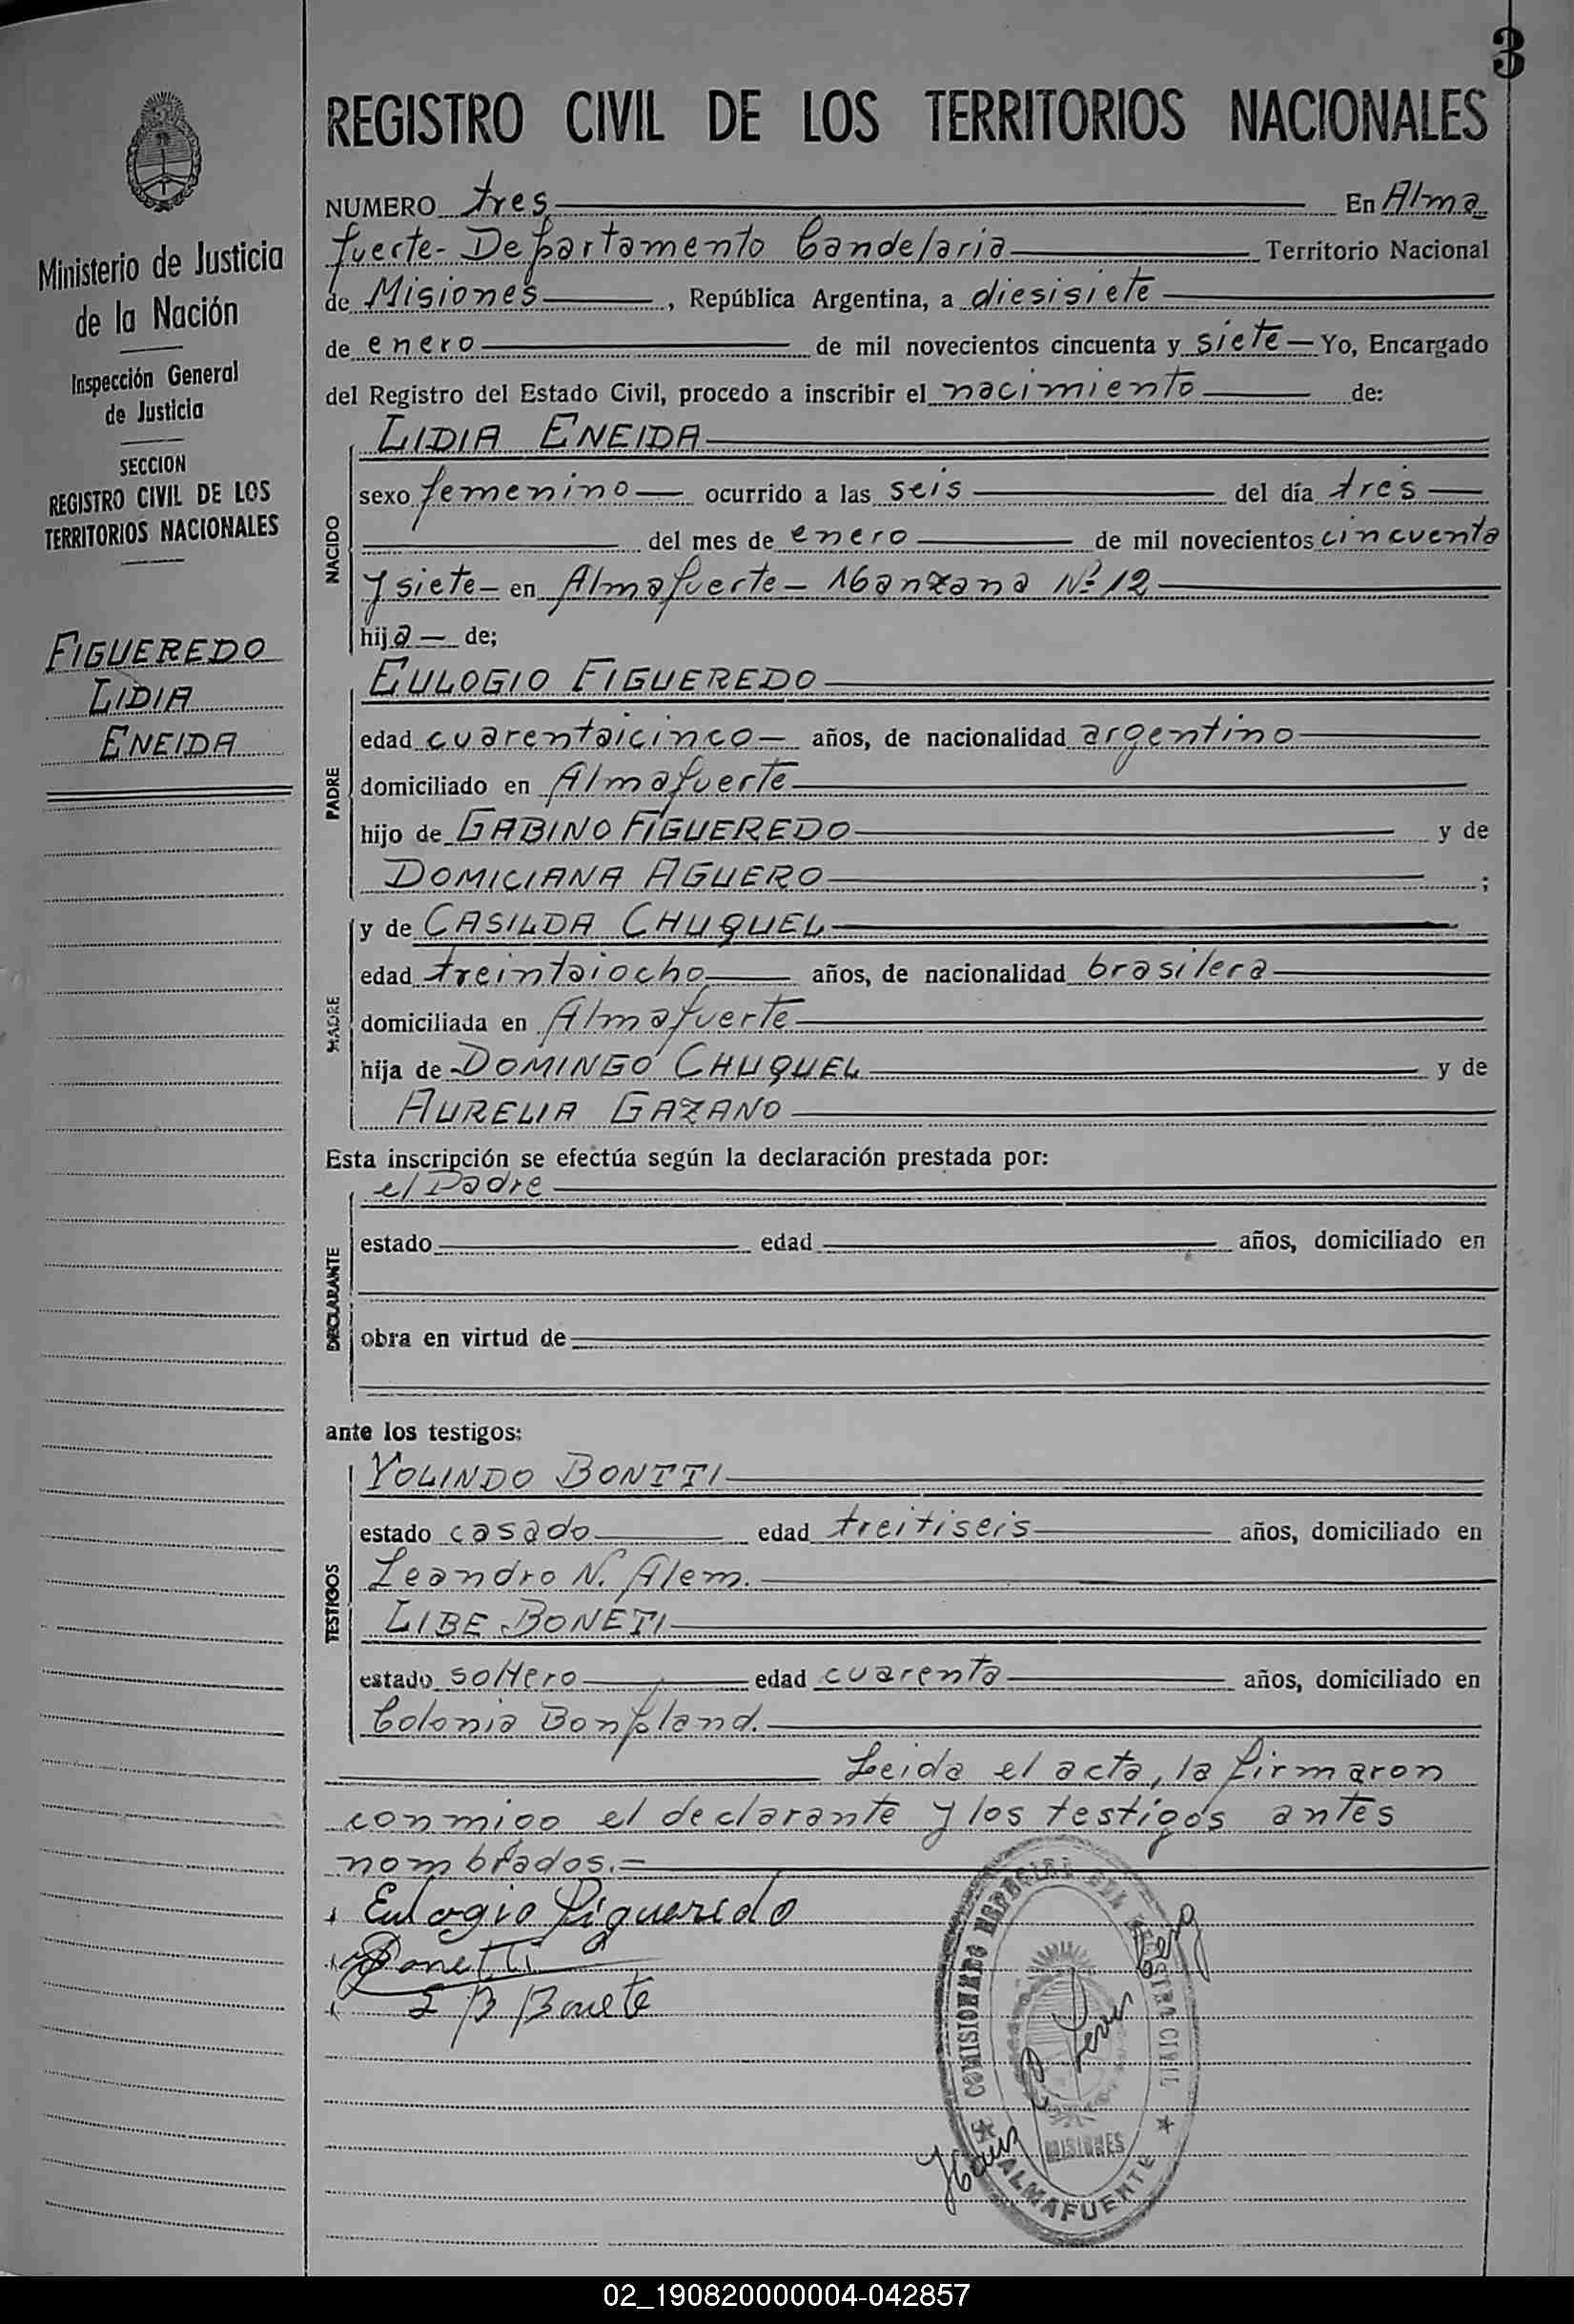 3
REGISTRO CIVIL DE LOS TERRITORIOS NACIONALES
Ministerio de Justicia
de la Nación
Inspección General
de Justicia
SECCION
REGISTRO CIVIL DE LOS
TERRITORIOS NACIONALES
FIGUEREDO
LIDIA
ENEIDA
NUMERO tres En Alma
fuerte - Departamento Candelaria Territorio Nacional
de Misiones, República Argentina, a diesisiete
de enero de mil novecientos cincuenta y siete - Yo, Encargado
del Registro del Estado Civil, procedo a inscribir el nacimiento de:
NACIDO
LIDIA ENEIDA
sexo femenino ocurrido a las seis del día tres
del mes de enero de mil novecientos cincuenta
y siete - en Almafuerte - Manzana Nº 12
hija de;
PADRE
EULOGIO FIGUEREDO
edad cuarentaicinco años, de nacionalidad argentino
domiciliado en Almafuerte
hijo de GABINO FIGUEREDO y de
DOMICIANA AGUERO ;
MADRE
y de CASILDA CHUQUEL
edad treintaiocho años, de nacionalidad brasilera
domiciliada en Almafuerte
hija de DOMINGO CHUQUEL y de
AURELIA GAZANO
Esta inscripción se efectúa según la declaración prestada por:
DECLARANTE
el Padre
estado edad años, domiciliado en
obra en virtud de
ante los testigos:
TESTIGOS
YOLINDO BONTTI
estado casado edad treitiseis años, domiciliado en
Leandro N. Alem.
LIBE BONETI
estado soltero edad cuarenta años, domiciliado en
Colonia Bonpland.
Leida el acta, la firmaron
conmigo el declarante y los testigos antes
nombrados.-
Eulogio Figueredo
Bonetti
L B Bonete
COMISIONADO ESPECIAL DEL REGISTRO CIVIL
MISIONES
ALMAFUERTE
02_190820000004-042857